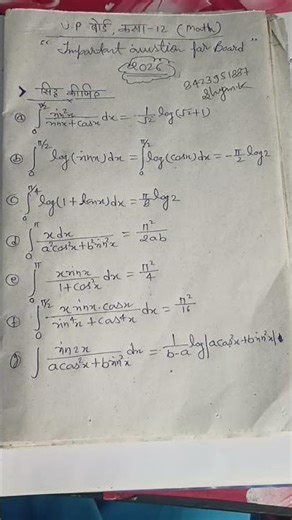 U.P बोर्ड, कक्षा-12 (Math)
"Important question for Board"
2026
8423951887
सिद्ध कीजिए
(a) ∫₀^{π/2} sin²x/(sinx+cosx) dx = 1/√2 log(√2+1)
(b) ∫₀^{π/2} log(sinx)dx = ∫₀^{π/2} log(cosx)dx = -π/2 log2
(c) ∫₀^{π/4} log(1+tanx)dx = π/8 log2
(d) ∫₀^{π} xdx/(a²cos²x+b²sin²x) = π²/2ab
(e) ∫₀^{π} xsinx/(1+cos²x) dx = π²/4
(f) ∫₀^{π/2} xsinx.cosx/(sin⁴x+cos⁴x) dx = π²/16
(g) ∫ sin2x/(acos²x+bsin²x) dx = 1/(b-a) log|acos²x+bsin²x|